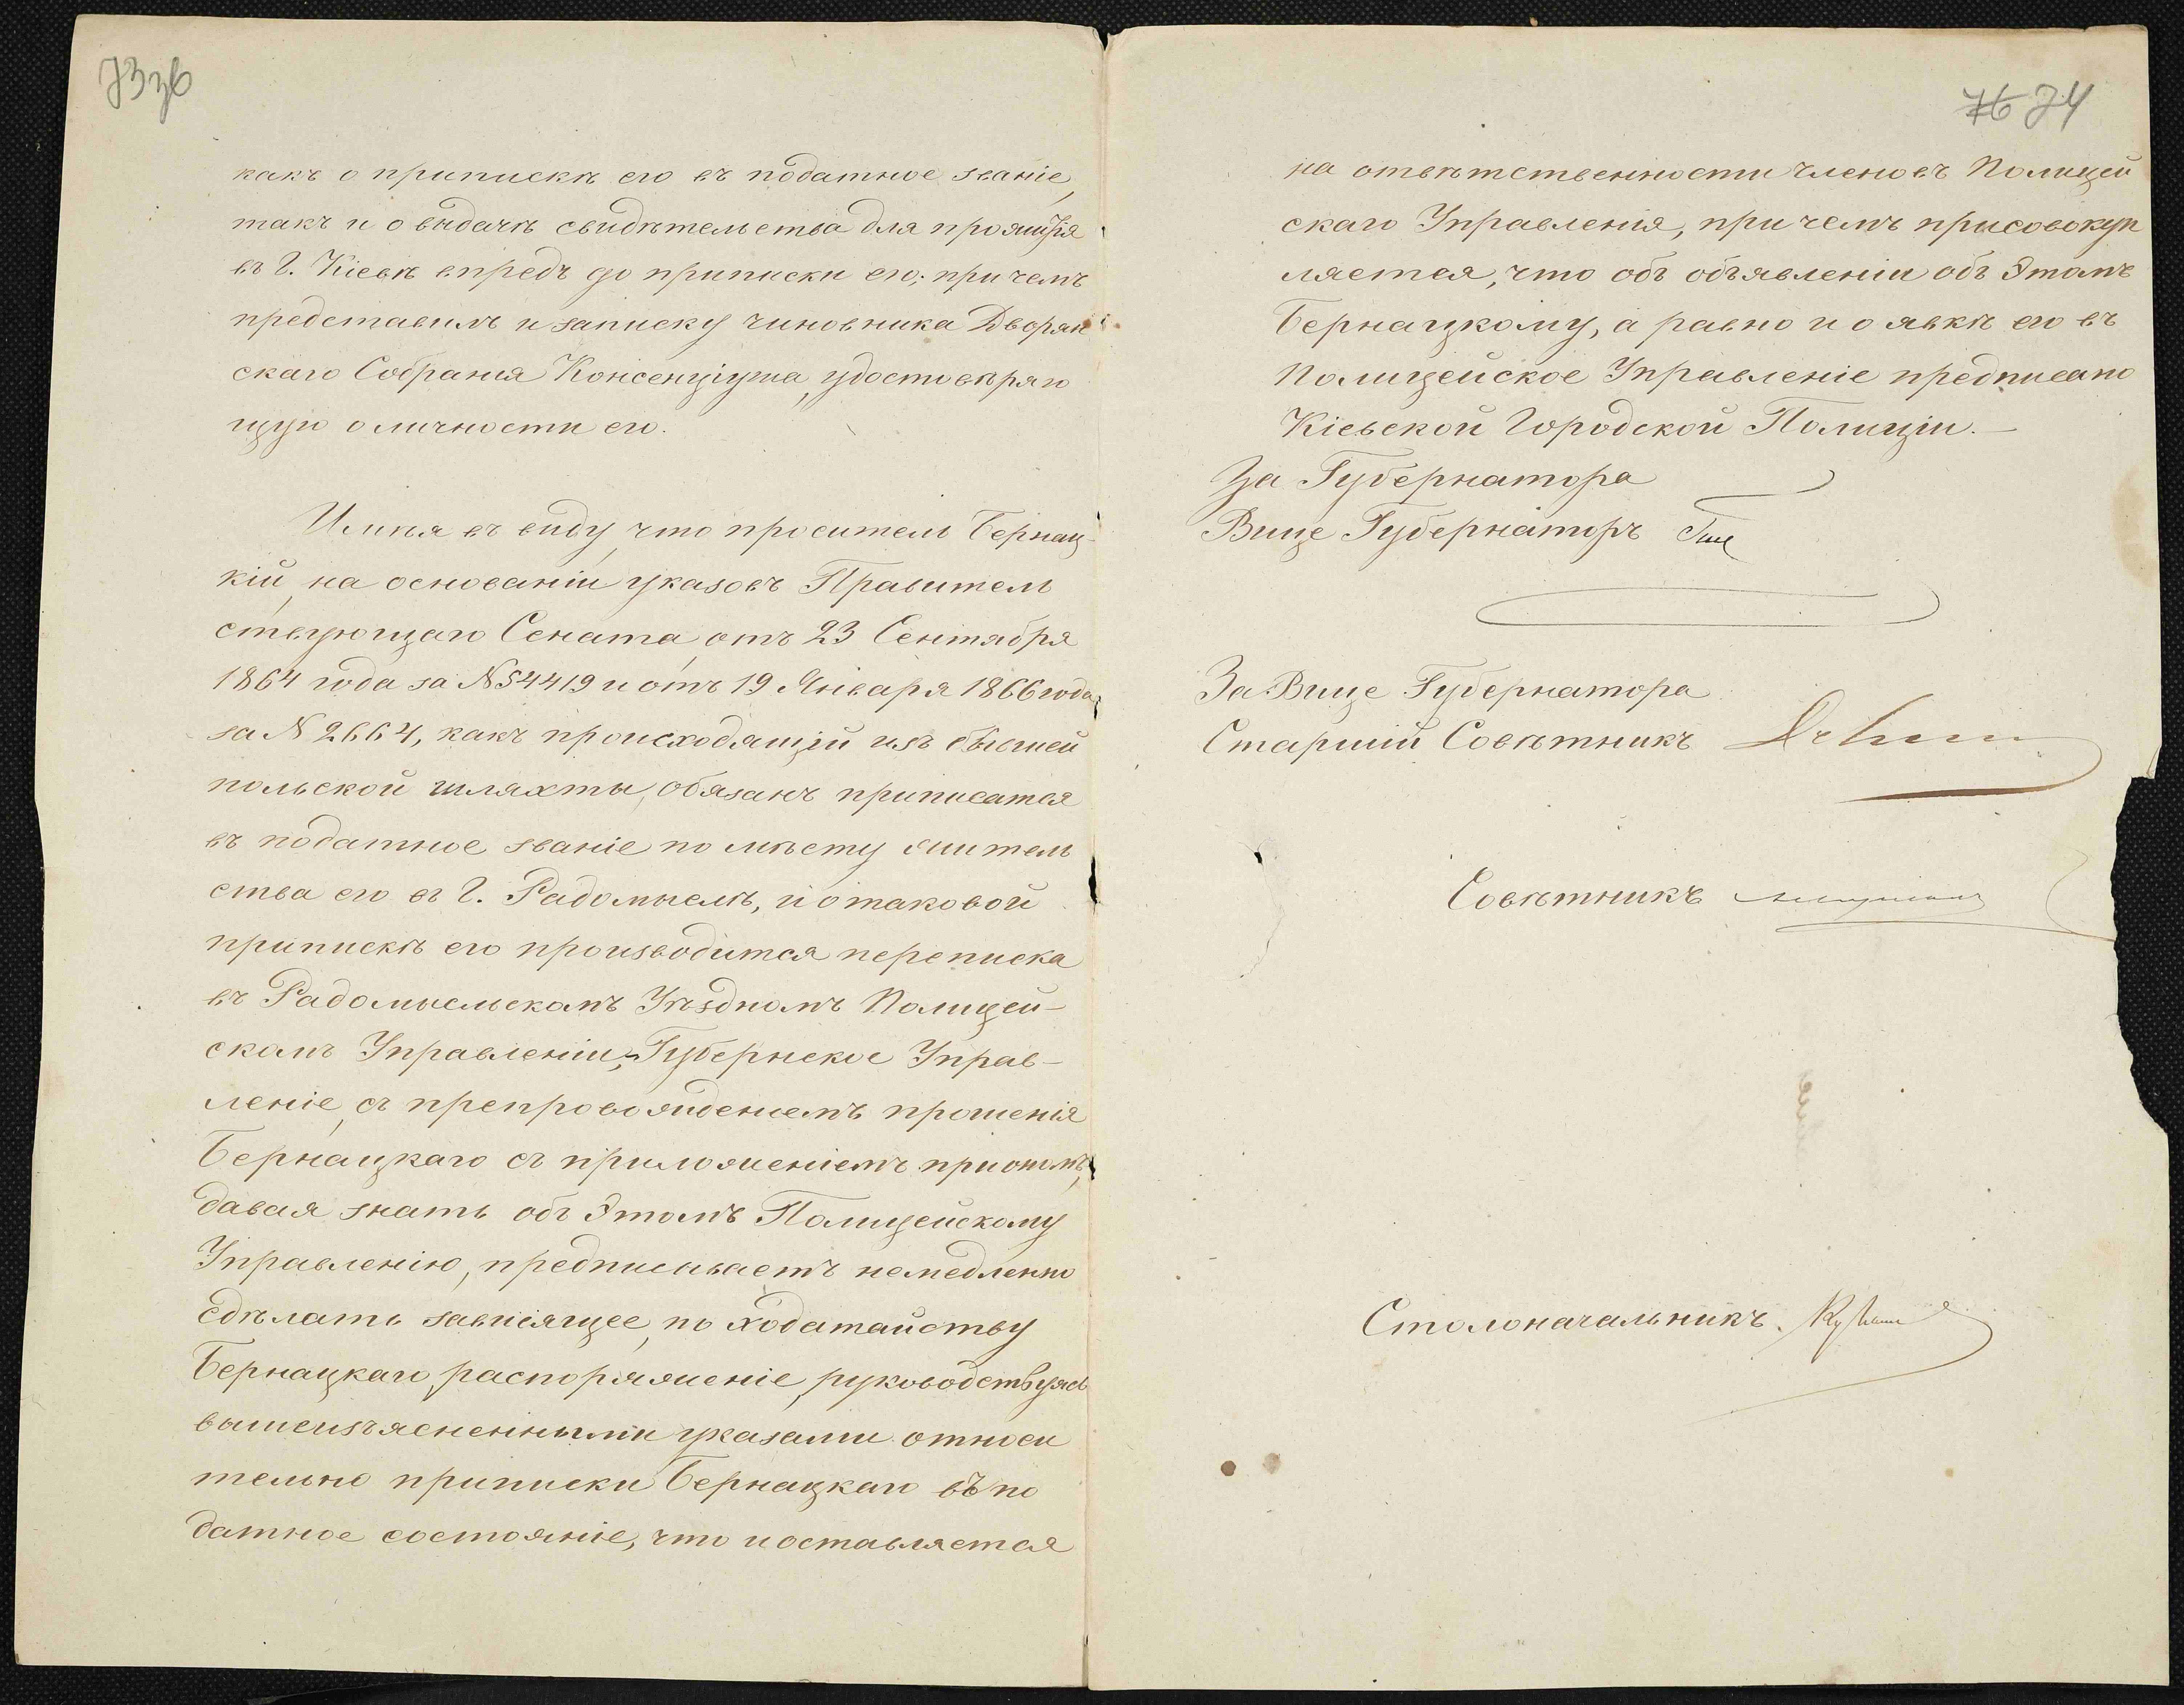 73 зв
какъ о припискѣ его въ податное званіе,
такъ и о выдачѣ свидѣтельства для прожитія
въ г. Кіевѣ впредь до приписки его; при чемъ
представилъ и записку чиновника Дворян
скаго Собранія Консенціуша, удостовѣряю
щую о личности его.
Имѣя въ виду, что проситель Бернац-
кій, на основаніи указовъ Правитель
ствующаго Сената отъ 23 Сентября
1864 года за № 54419 и отъ 19 Января 1866 года
за № 2664, какъ происходящій изъ бывшей
польской шляхты, обязанъ приписаться
въ податное званіе по мѣсту житель
ства его въ г. Радомыслѣ, и о таковой
припискѣ его производится переписка
въ Радомысльскомъ Уѣздномъ Полицей-
скомъ Управленіи, Губернское Управ-
леніе, съ препровожденіемъ прошенія
Бернацкаго съ приложеніемъ при ономъ,
давая знать объ этомъ Полицейскому
Управленію, предписываетъ немедленно
сдѣлать зависящее, по ходатайству
Бернацкаго, распоряженіе, руководствуясь
вышеизъясненными указами относи
тельно приписки Бернацкаго въ по
датное состояніе, что и оставляется
76 74
на отвѣтственности членовъ Полицей
скаго Управленія, при чемъ присовокуп
ляется, что объ объявленіи объ этомъ
Бернацкому, а равно и о явкѣ его въ
Полицейское Управленіе предписано
Кіевской Городской Полиціи.—
За Губернатора
Вице Губернаторъ
За Вице Губернатора
Старшій Совѣтникъ
Совѣтникъ
Столоначальникъ.